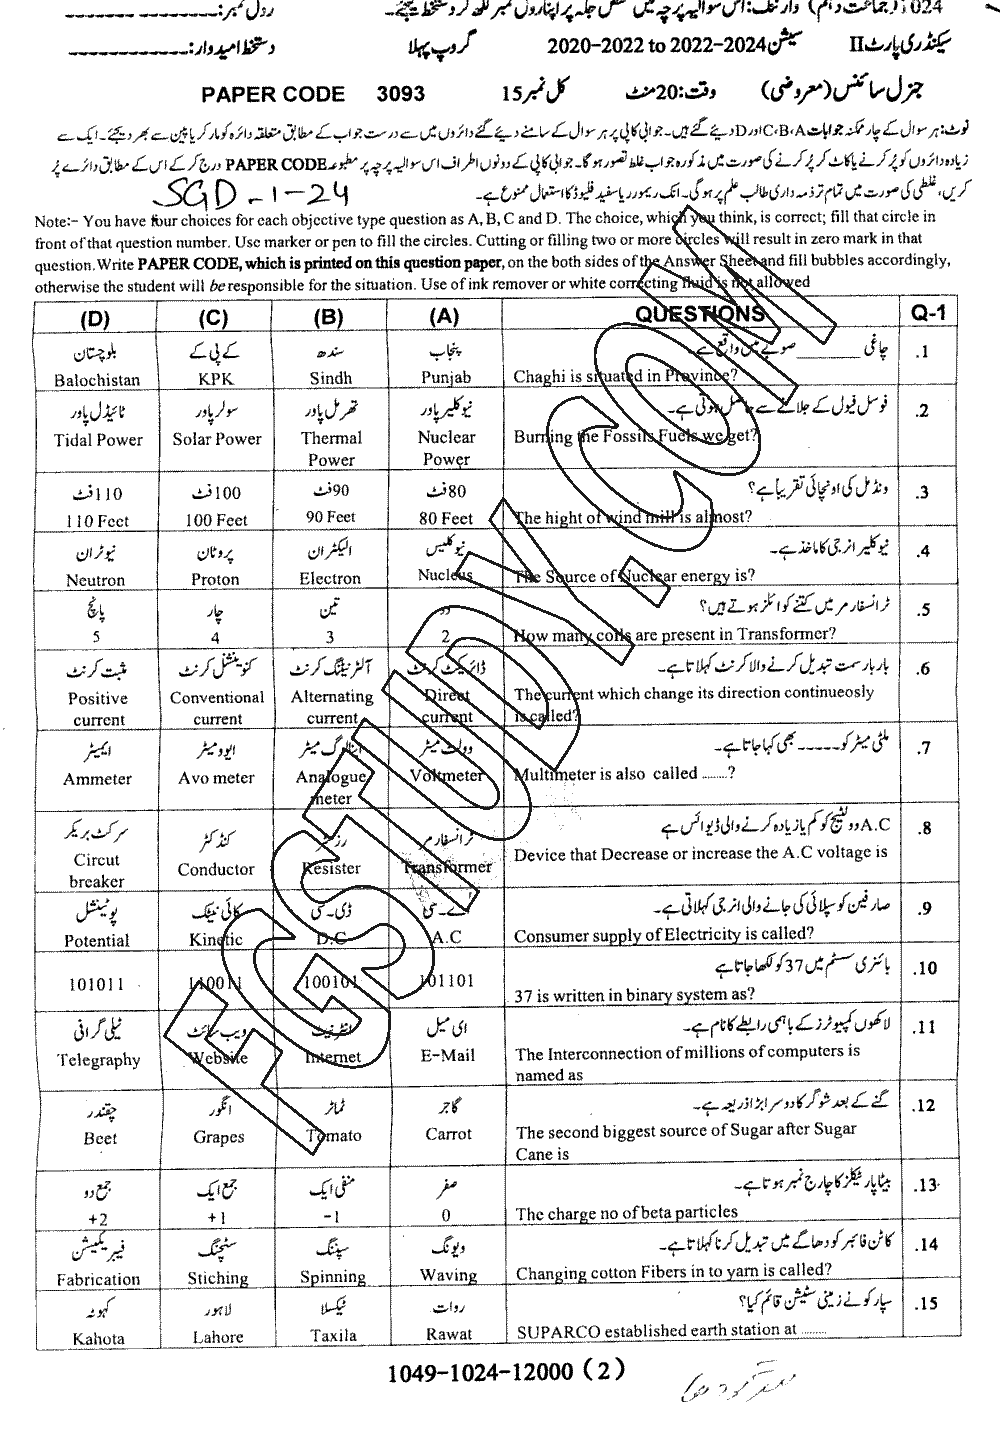 024 (جماعت دہم) وارننگ: اس سوالیہ پرچہ میں مختص جگہ پر اپنا رول نمبر لکھ کر دستخط کیجئے۔ رول نمبر:
سیکنڈری پارٹ II سیشن 2020-2022 to 2022-2024 گروپ پہلا دستخط امیدوار:
جنرل سائنس (معروضی) وقت: 20 منٹ کل نمبر 15 PAPER CODE 3093
نوٹ: ہر سوال کے چار ممکنہ جوابات C،B،A اور D دیئے گئے ہیں۔ جوابی کاپی پر ہر سوال کے سامنے دیئے گئے دائروں میں سے درست جواب کے مطابق متعلقہ دائرہ کو مارکر یا پین سے بھر دیجئے۔ ایک سے
زیادہ دائروں کو پر کرنے یا کاٹ کر پر کرنے کی صورت میں مذکورہ جواب غلط تصور ہوگا۔ جوابی کاپی کے دونوں اطراف اس سوالیہ پرچہ پر مطبوعہ PAPER CODE درج کر کے اس کے مطابق دائرے پُر
کریں، غلطی کی صورت میں تمام تر ذمہ داری طالب علم پر ہوگی۔ انک ریموور یا سفید فلیوڈ کا استعمال ممنوع ہے۔
SGD-1-24
Note:- You have four choices for each objective type question as A, B, C and D. The choice, which you think, is correct; fill that circle in
front of that question number. Use marker or pen to fill the circles. Cutting or filling two or more circles will result in zero mark in that
question. Write PAPER CODE, which is printed on this question paper, on the both sides of the Answer Sheet and fill bubbles accordingly,
otherwise the student will be responsible for the situation. Use of ink remover or white correcting fluid is not allowed
(D) (C) (B) (A) QUESTIONS Q-1
بلوچستان کے پی کے سندھ پنجاب چاغی ______ صوبے میں واقع ہے۔ .1
Balochistan KPK Sindh Punjab Chaghi is situated in Province?
ٹائیڈل پاور سولر پاور تھرمل پاور نیوکلیئر پاور فوسل فیول کے جلانے سے حاصل ہوتی ہے۔ .2
Tidal Power Solar Power Thermal Nuclear Burning the Fossils Fuels we get?
Power Power
110فٹ 100فٹ 90فٹ 80فٹ ونڈمل کی اونچائی تقریباً ہے؟ .3
110 Feet 100 Feet 90 Feet 80 Feet The hight of wind mill is almost?
نیوٹران پروٹان الیکٹران نیوکلیس نیوکلیئر انرجی کا ماخذ ہے۔ .4
Neutron Proton Electron Nucleus The Source of Nuclear energy is?
پانچ چار تین دو ٹرانسفارمر میں کتنے کوائلز ہوتے ہیں؟ .5
5 4 3 2 How many coils are present in Transformer?
مثبت کرنٹ کنوینشنل کرنٹ آلٹرنیٹنگ کرنٹ ڈائریکٹ کرنٹ بار بار سمت تبدیل کرنے والا کرنٹ کہلاتا ہے۔ .6
Positive Conventional Alternating Direct The current which change its direction continueosly
current current current current is called?
ایمیٹر ایوومیٹر اینالوگ میٹر وولٹ میٹر ملٹی میٹر کو ----- بھی کہا جاتا ہے۔ .7
Ammeter Avo meter Analogue Voltmeter Multimeter is also called ........?
meter
سرکٹ بریکر کنڈکٹر رزسٹر ٹرانسفارمر A.C وولٹیج کو کم یا زیادہ کرنے والی ڈیوائس ہے .8
Circut Conductor Resister Transformer Device that Decrease or increase the A.C voltage is
breaker
پوٹینشل کائی نیٹک ڈی۔سی اے۔سی صارفین کو سپلائی کی جانے والی انرجی کہلاتی ہے۔ .9
Potential Kinetic D.C A.C Consumer supply of Electricity is called?
بائنری سسٹم میں 37 کو لکھا جاتا ہے .10
101011 110011 100101 101101 37 is written in binary system as?
ٹیلی گرافی ویب سائٹ انٹرنیٹ ای میل لاکھوں کمپیوٹرز کے باہمی رابطے کا نام ہے۔ .11
Telegraphy Website Internet E-Mail The Interconnection of millions of computers is
named as
چقندر انگور ٹماٹر گاجر گنے کے بعد شوگر کا دوسرا بڑا ذریعہ ہے۔ .12
Beet Grapes Tomato Carrot The second biggest source of Sugar after Sugar
Cane is
جمع دو جمع ایک منفی ایک صفر بیٹا پارٹیکلز کا چارج نمبر ہوتا ہے۔ .13
+2 +1 -1 0 The charge no of beta particles
فیبریکیشن سٹچنگ سپننگ ویونگ کاٹن فائبر کو دھاگے میں تبدیل کرنا کہلاتا ہے۔ .14
Fabrication Stiching Spinning Waving Changing cotton Fibers in to yarn is called?
کہوٹہ لاہور ٹیکسلا روات سپارکو نے زمینی سٹیشن قائم کیا؟ .15
Kahota Lahore Taxila Rawat SUPARCO established earth station at ........
1049-1024-12000 (2)
سرگودھا
FGSTUDY.COM